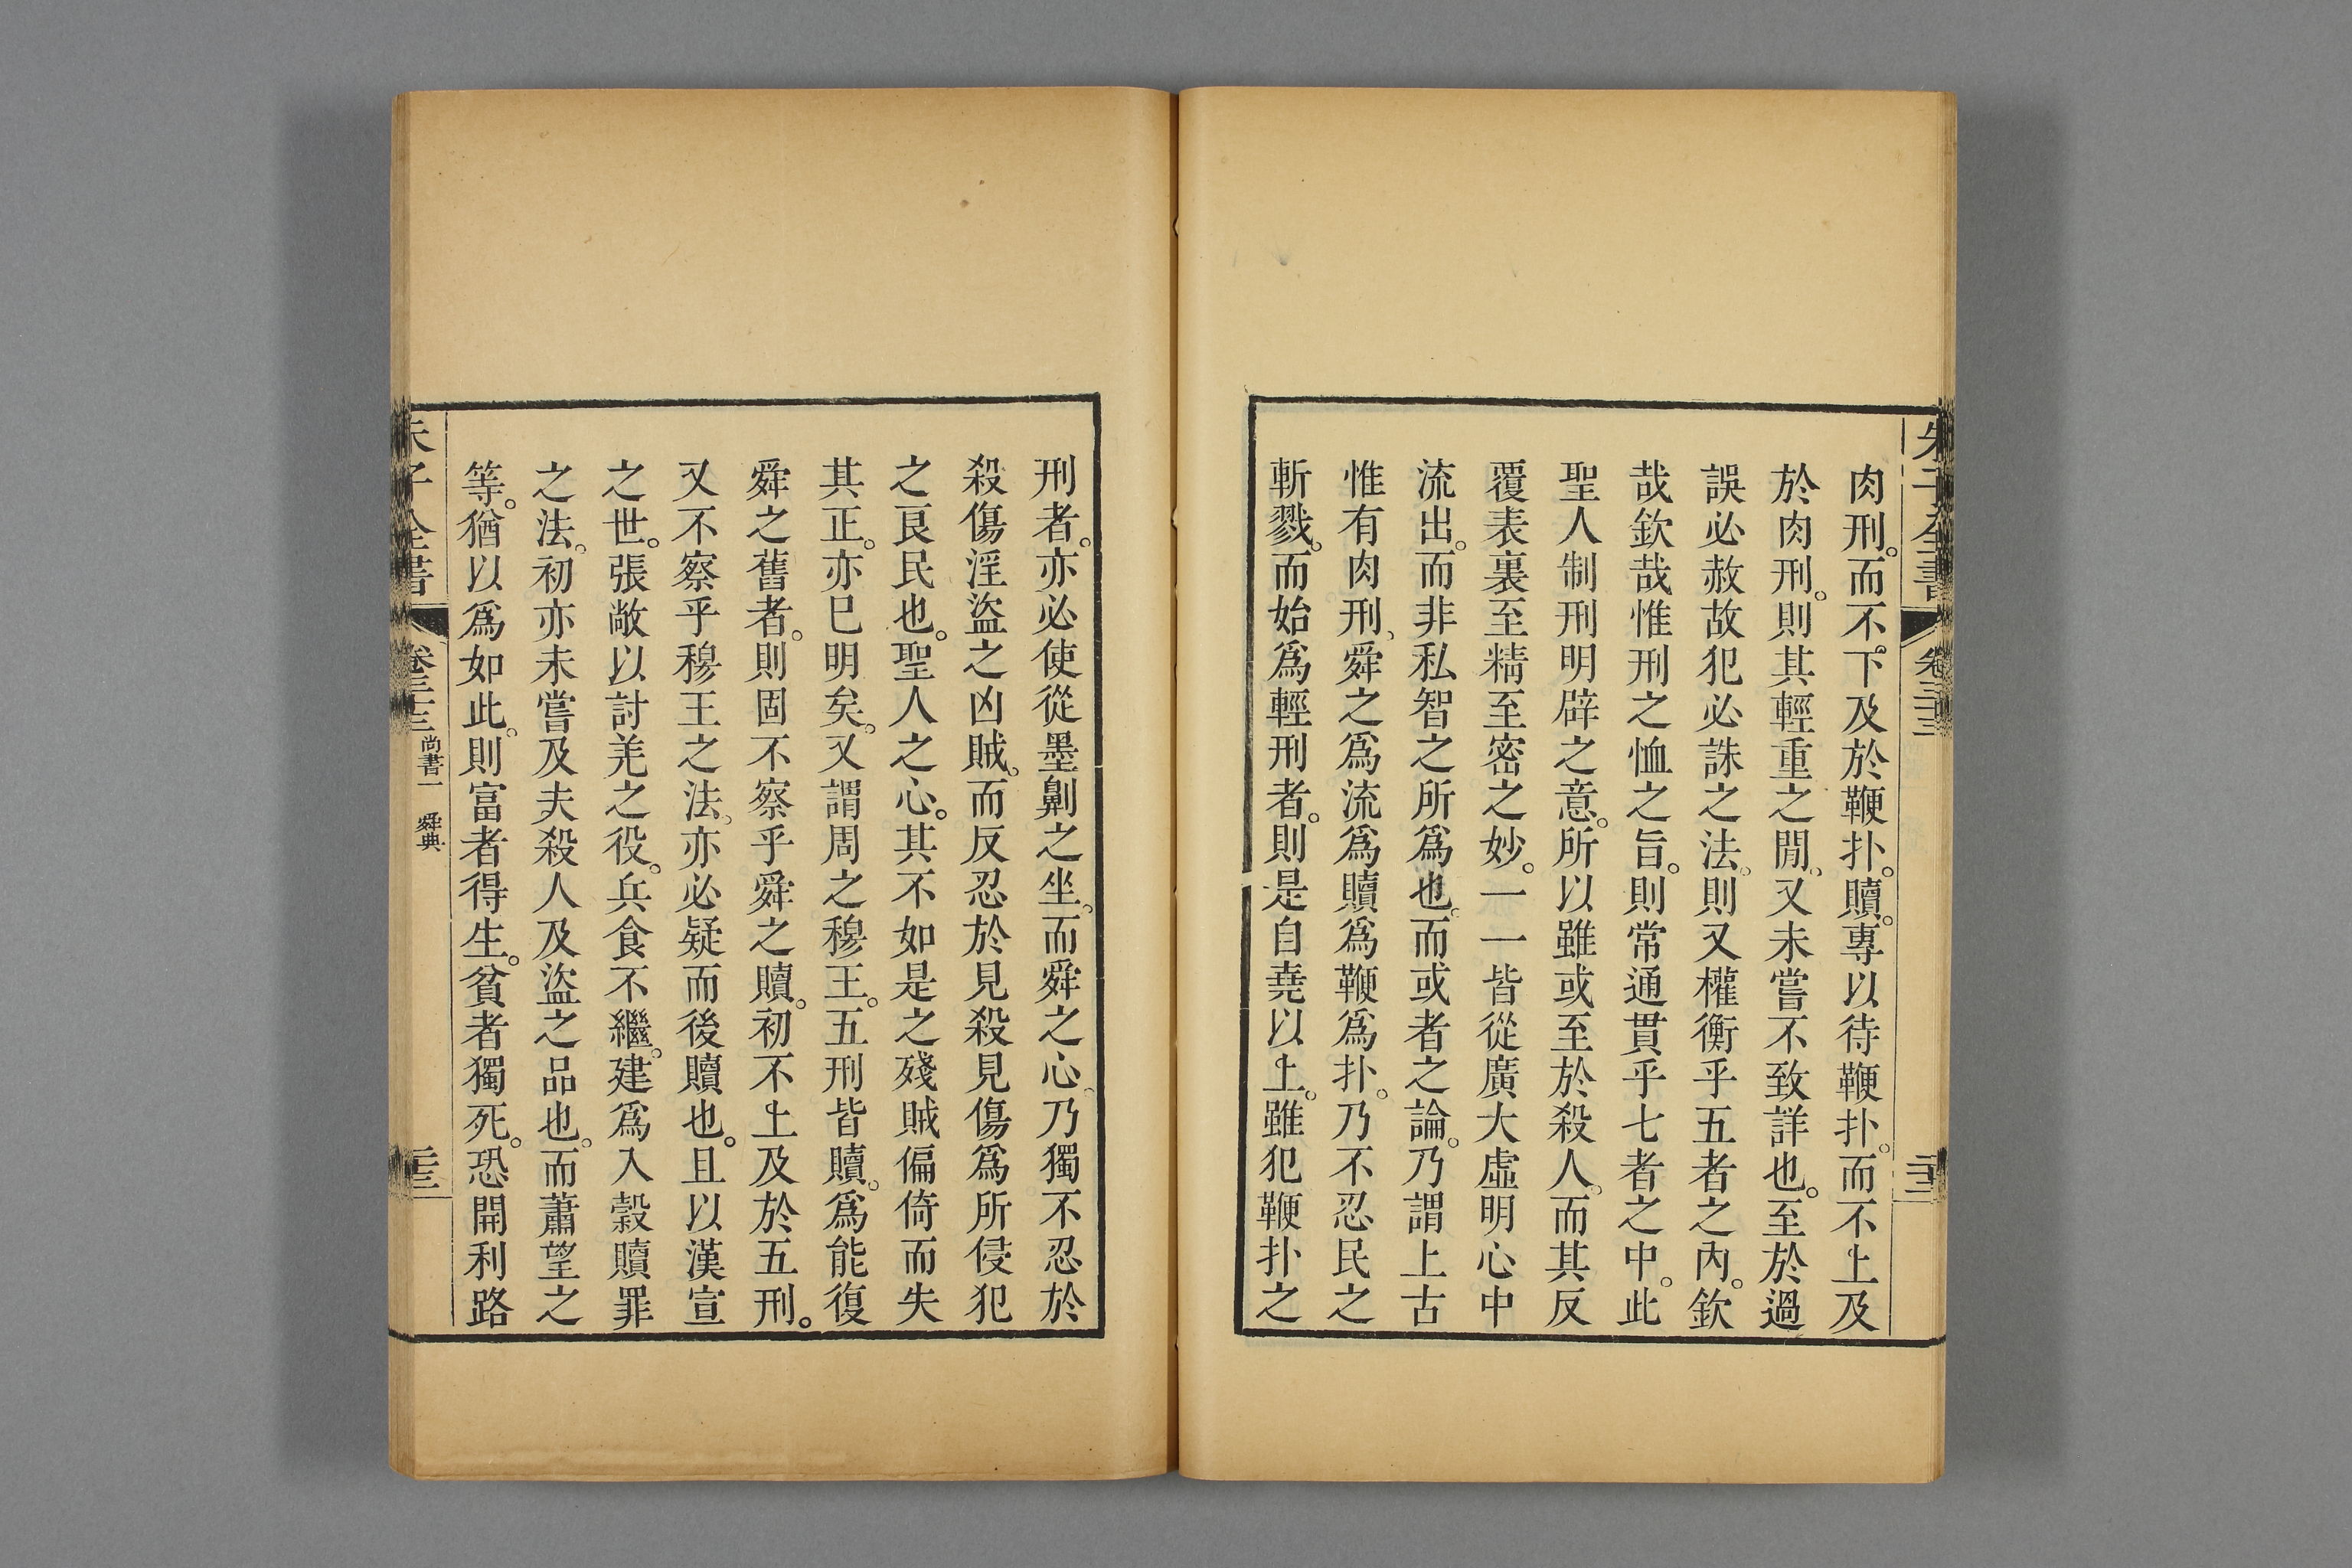 朱子全書 卷三十三
肉刑。而不下及於鞭扑。贖。專以待鞭扑。而不上及
於肉刑。則其輕重之閒、又未嘗不致詳也。至於過
誤必赦故犯必誅之法。則又權衡乎五者之內。欽
哉欽哉惟刑之恤之旨。則常通貫乎七者之中。此
聖人制刑明辟之意。所以雖或至於殺人。而其反
覆表裏至精至密之妙。一一皆從廣大虛明心中
流出。而非私智之所爲也。而或者之論。乃謂上古
惟有肉刑、舜之爲流爲贖爲鞭爲扑。乃不忍民之
斬戮。而始爲輕刑者。則是自堯以上。雖犯鞭扑之
刑者。亦必使從墨劓之坐。而舜之心、乃獨不忍於
殺傷淫盜之凶賊。而反忍於見殺見傷爲所侵犯
之良民也。聖人之心。其不如是之殘賊偏倚而失
其正。亦巳明矣。又謂周之穆王。五刑皆贖。爲能復
舜之舊者。則固不察乎舜之贖。初不上及於五刑。
又不察乎穆王之法。亦必疑而後贖也。且以漢宣
之世。張敞以討羌之役。兵食不繼。建爲入穀贖罪
之法。初亦未嘗及夫殺人及盜之品也。而蕭望之
等。猶以爲如此。則富者得生。貧者獨死。恐開利路
朱子全書 卷三十三 尚書一 舜典